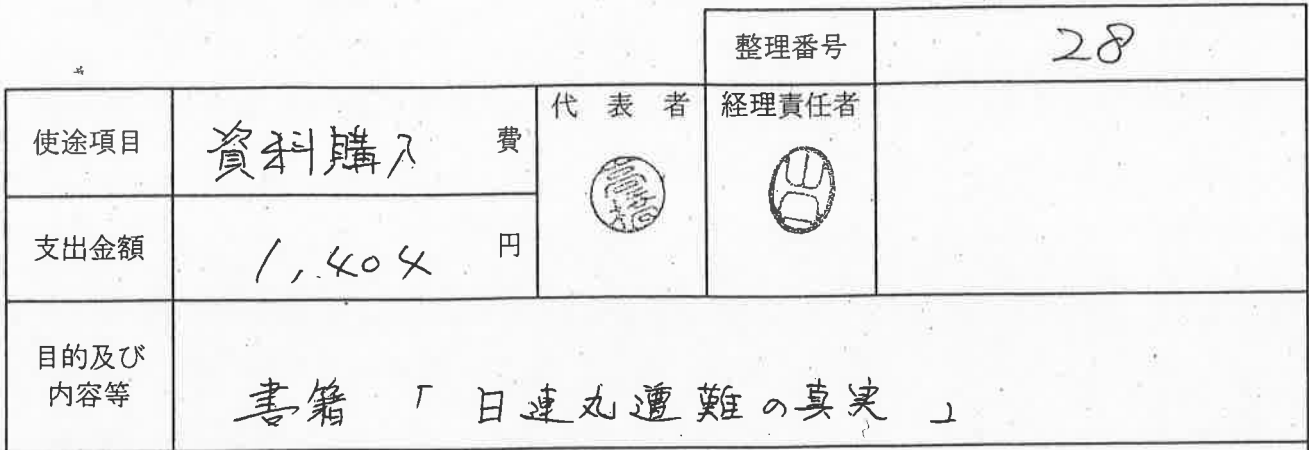 整理番号 28
使途項目 資料購入 費 代表者 経理責任者
支出金額 1,404 円
目的及び
内容等 書籍「日連丸遭難の真実」